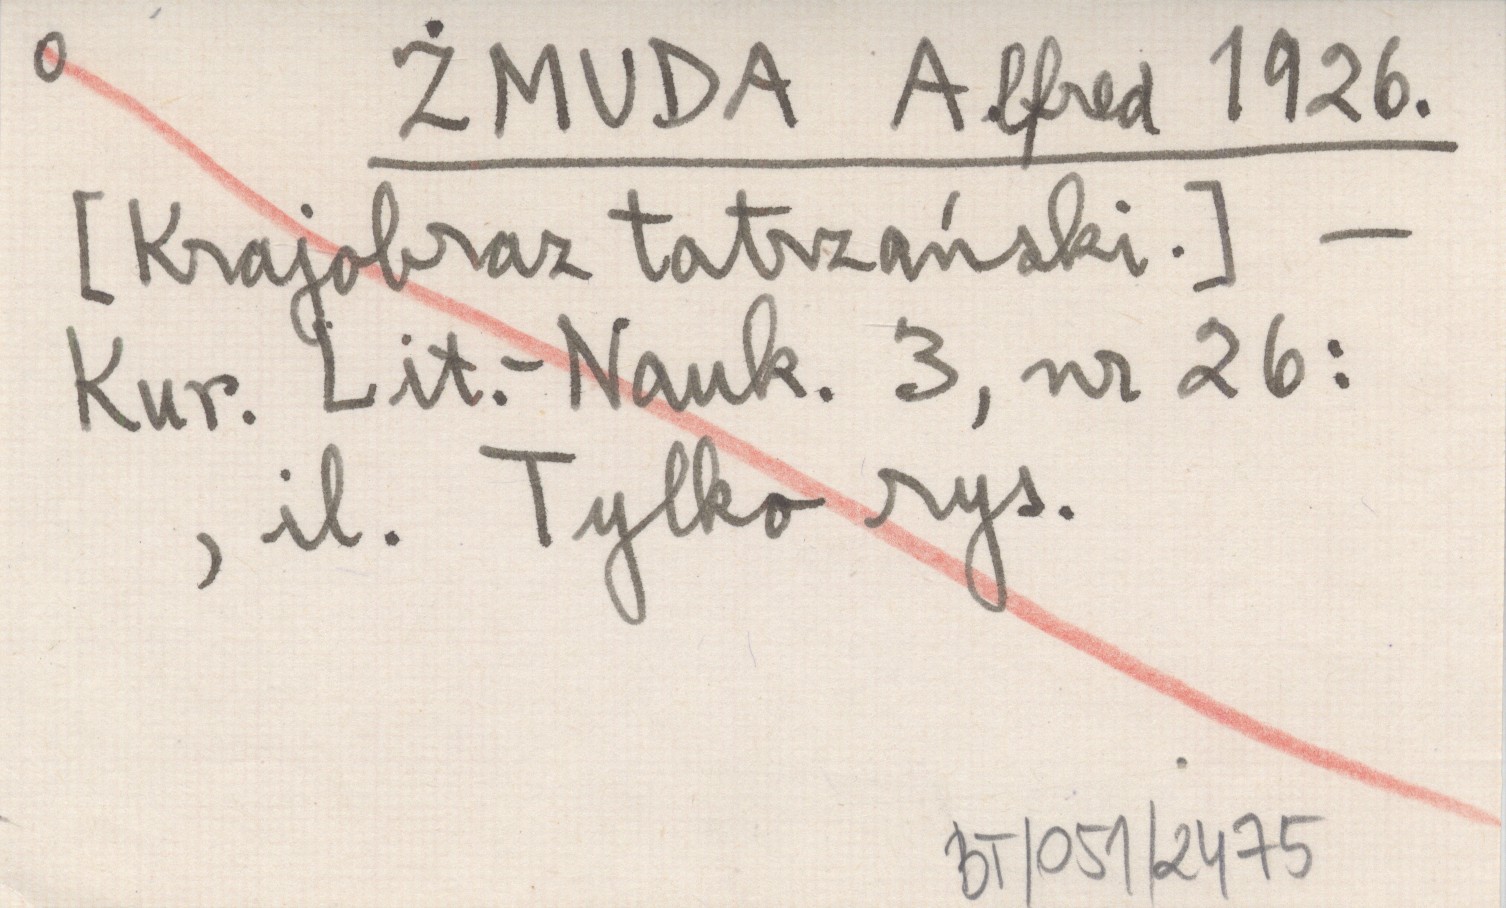 o
ŻMUDA Alfred 1926.
[Krajobraz tatrzański.] —
Kur. Lit.-Nauk. 3, nr 26:
, il. Tylko rys.
BT/051/2475